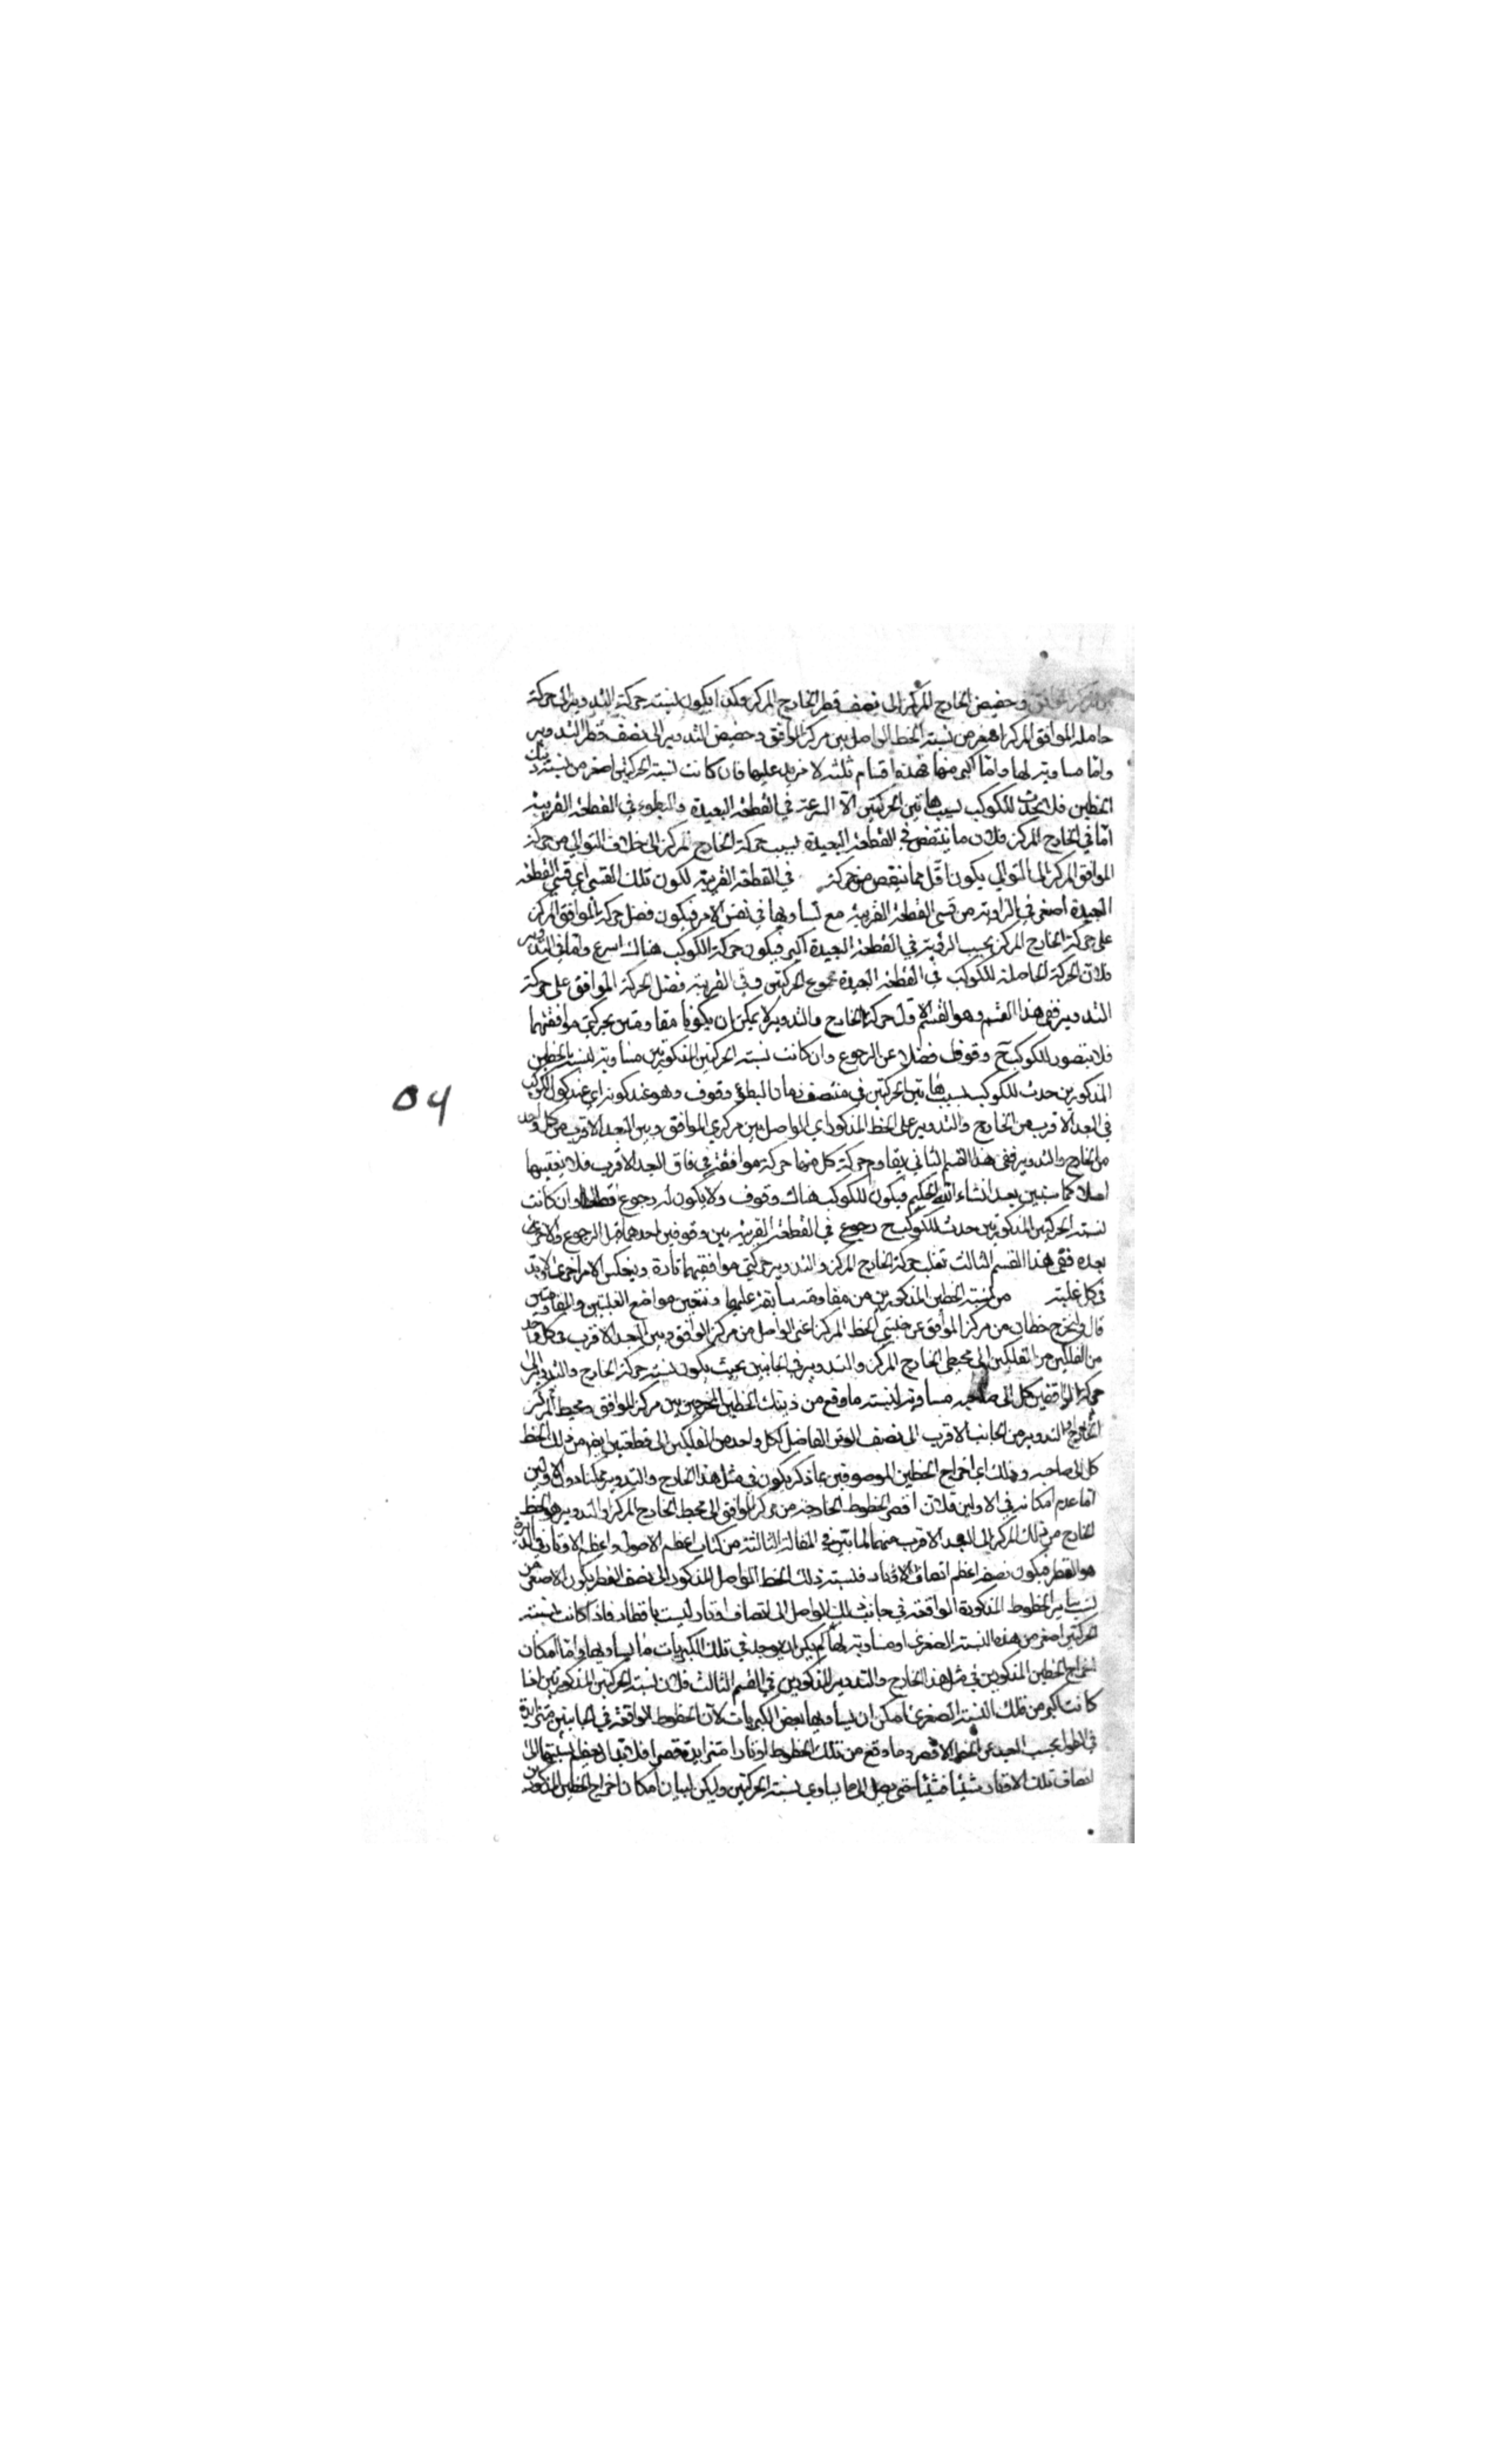 مركز الموافق وحضيض الخارج المركز الى نصف قطر الخارج المركز وكذا يكون نسبة حركة التدوير الى حركة
حامله الموافق المركز اصغر من نسبة الخط الواصل بين مركز الموافق وحضيض التدوير الى نصف قطر التدوير
واما مساوية لها واما اكبر منها فهذه اقسام ثلثة لا مزيد عليها فان كانت نسبة الحركتين اصغر من نسبة ذينك
الخطين فلا يحدث للكوكب بسبب هاتين الحركتين الا السرعة في القطعة البعيدة والبطوء في القطعة القريبة
اما في الخارج المركز فلان ما ينتقص في القطعة البعيدة بسبب حركة الخارج المركز الى خلاف التوالي من حركة
الموافق المركز الى التوالي يكون اقل مما ينقص من حركة في القطعة القريبة لكون تلك القسي اي قسي القطعة
البعيدة اصغر في الرؤية من قسي القطعة القريبة مع تساويها في نفس الامر فيكون فضل حركة الموافق المركز
على حركة الخارج المركز بحسب الرؤية في القطعة البعيدة اكبر فيكون حركة الكوكب هناك اسرع واما في التدوير
فلان الحركة الحاصلة للكوكب في القطعة البعيدة مجموع الحركتين وفي القريبة فضل الحركة الموافق على حركة
التدوير ففي هذا القسم وهو القسم الاول حركة الخارج والتدوير لا يمكن ان يكونا مقاومتين بحركتي موافقتهما
فلا يتصور للكوكب ح وقوف فضلا عن الرجوع وان كانت نسبة الحركتين المذكورتين مساوية لنسبة الخطين
المذكورين حدث للكوكب بسبب هاتين الحركتين في منتصف زمان البطؤ وقوف وهو عند كونه اي عند كون الكوكب
في البعد الاقرب من الخارج والتدوير على الخط المذكور اي الواصل بين مركزي الموافق وبين البعد الاقرب من كل واحد
من الخارج والتدوير ففي هذا القسم الثاني يقاوم حركة كل منهما حركة موافقة في فاق البعد الاقرب فلا
اصلا كما سنبين بعد انشاء الله الحكيم فيكون للكوكب هناك وقوف ولا يكون له رجوع قطعا وان كانت
نسبة الحركتين المذكورتين حدث للكوكب ح رجوع في القطعة القريبة بين وقوفين احدهما قبل الرجوع والاخر
بعده ففي هذا القسم الثالث تغلب حركة الخارج المركز والتدوير حركتي موافقيهما تارة وينعكس الامر اخرى ولا بد
في كل غلبة من نسبة الخطين المذكورين من مقاومة سابقة عليها وتتعين مواضع الغلبتين والمقاومتين
قال ولنخرج خطان من مركز الموافق عن جنبتي الخط المركز اعني الواصل من مركز الموافق وبين البعد الاقرب في كل واحد
من الفلكين من الفلكين الى محيطي الخارج المركز والتدوير في الجانبين بحيث يكون نسبة حركة الخارج والتدوير الى
حركة الموافقين كل الى صاحبه مساوية لنسبة ما وقع من ذينك الخطين المخرجين بين مركز الموافق ومحيط المركز
الخارج او التدوير من الجانب الاقرب الى نصف الوتر الفاصل لكل واحد من الفلكين الى قطعتين ايضا من ذلك الخط
كل الى صاحبه وذلك اي اخراج الخطين الموصوفين بما ذكر يكون في مثل هذا الخارج والتدوير ممكنا دون الاولين
اما عدم امكانه في الاولين فلان اقصر الخطوط الخارجة من مركز الموافق الى محيط الخارج المركز او التدوير هو الخط
الخارج من ذلك المركز الى البعد الاقرب منهما لما تبين في المقالة الثالثة من كتاب اعظم الاصول واعظم الاوتار في الدائرة
هو القطر فيكون نصفه اعظم انصاف الاوتار فنسبة ذلك الخط الواصل المذكور الى نصف القطر يكون الاصغر من
نسب سائر الخطوط المذكورة الواقعة في جانبي ذلك الواصل الى انصاف اوتار ليست باقطار فاذا كانت نسبة
الحركتين اصغر من هذه النسبة الصغرى او مساوية لها لم يمكن ان يوجد في تلك الكبريات ما يساويها واما امكان
اخراج الخطين المذكورين في مثل هذا الخارج والتدوير المذكورين في القسم الثالث فلان نسبة الحركتين المذكورتين اذا
كانت اكبر من تلك النسبة الصغرى امكن ان يساويها بعض الكبريات لان الخطوط الواقعة في الجانبين متزايدة
في الطول بحسب البعد عن الخط الاقصر وما وقع من تلك الخطوط اوتارا متزايدة قصرا فلا تزال يعظم نسبتها الى
انصاف تلك الاوتار شيئا فشيئا حتى يصل الى ما يساوي نسبة الحركتين وليكن لبيان امكان اخراج الخطين المذكورين
٥٦